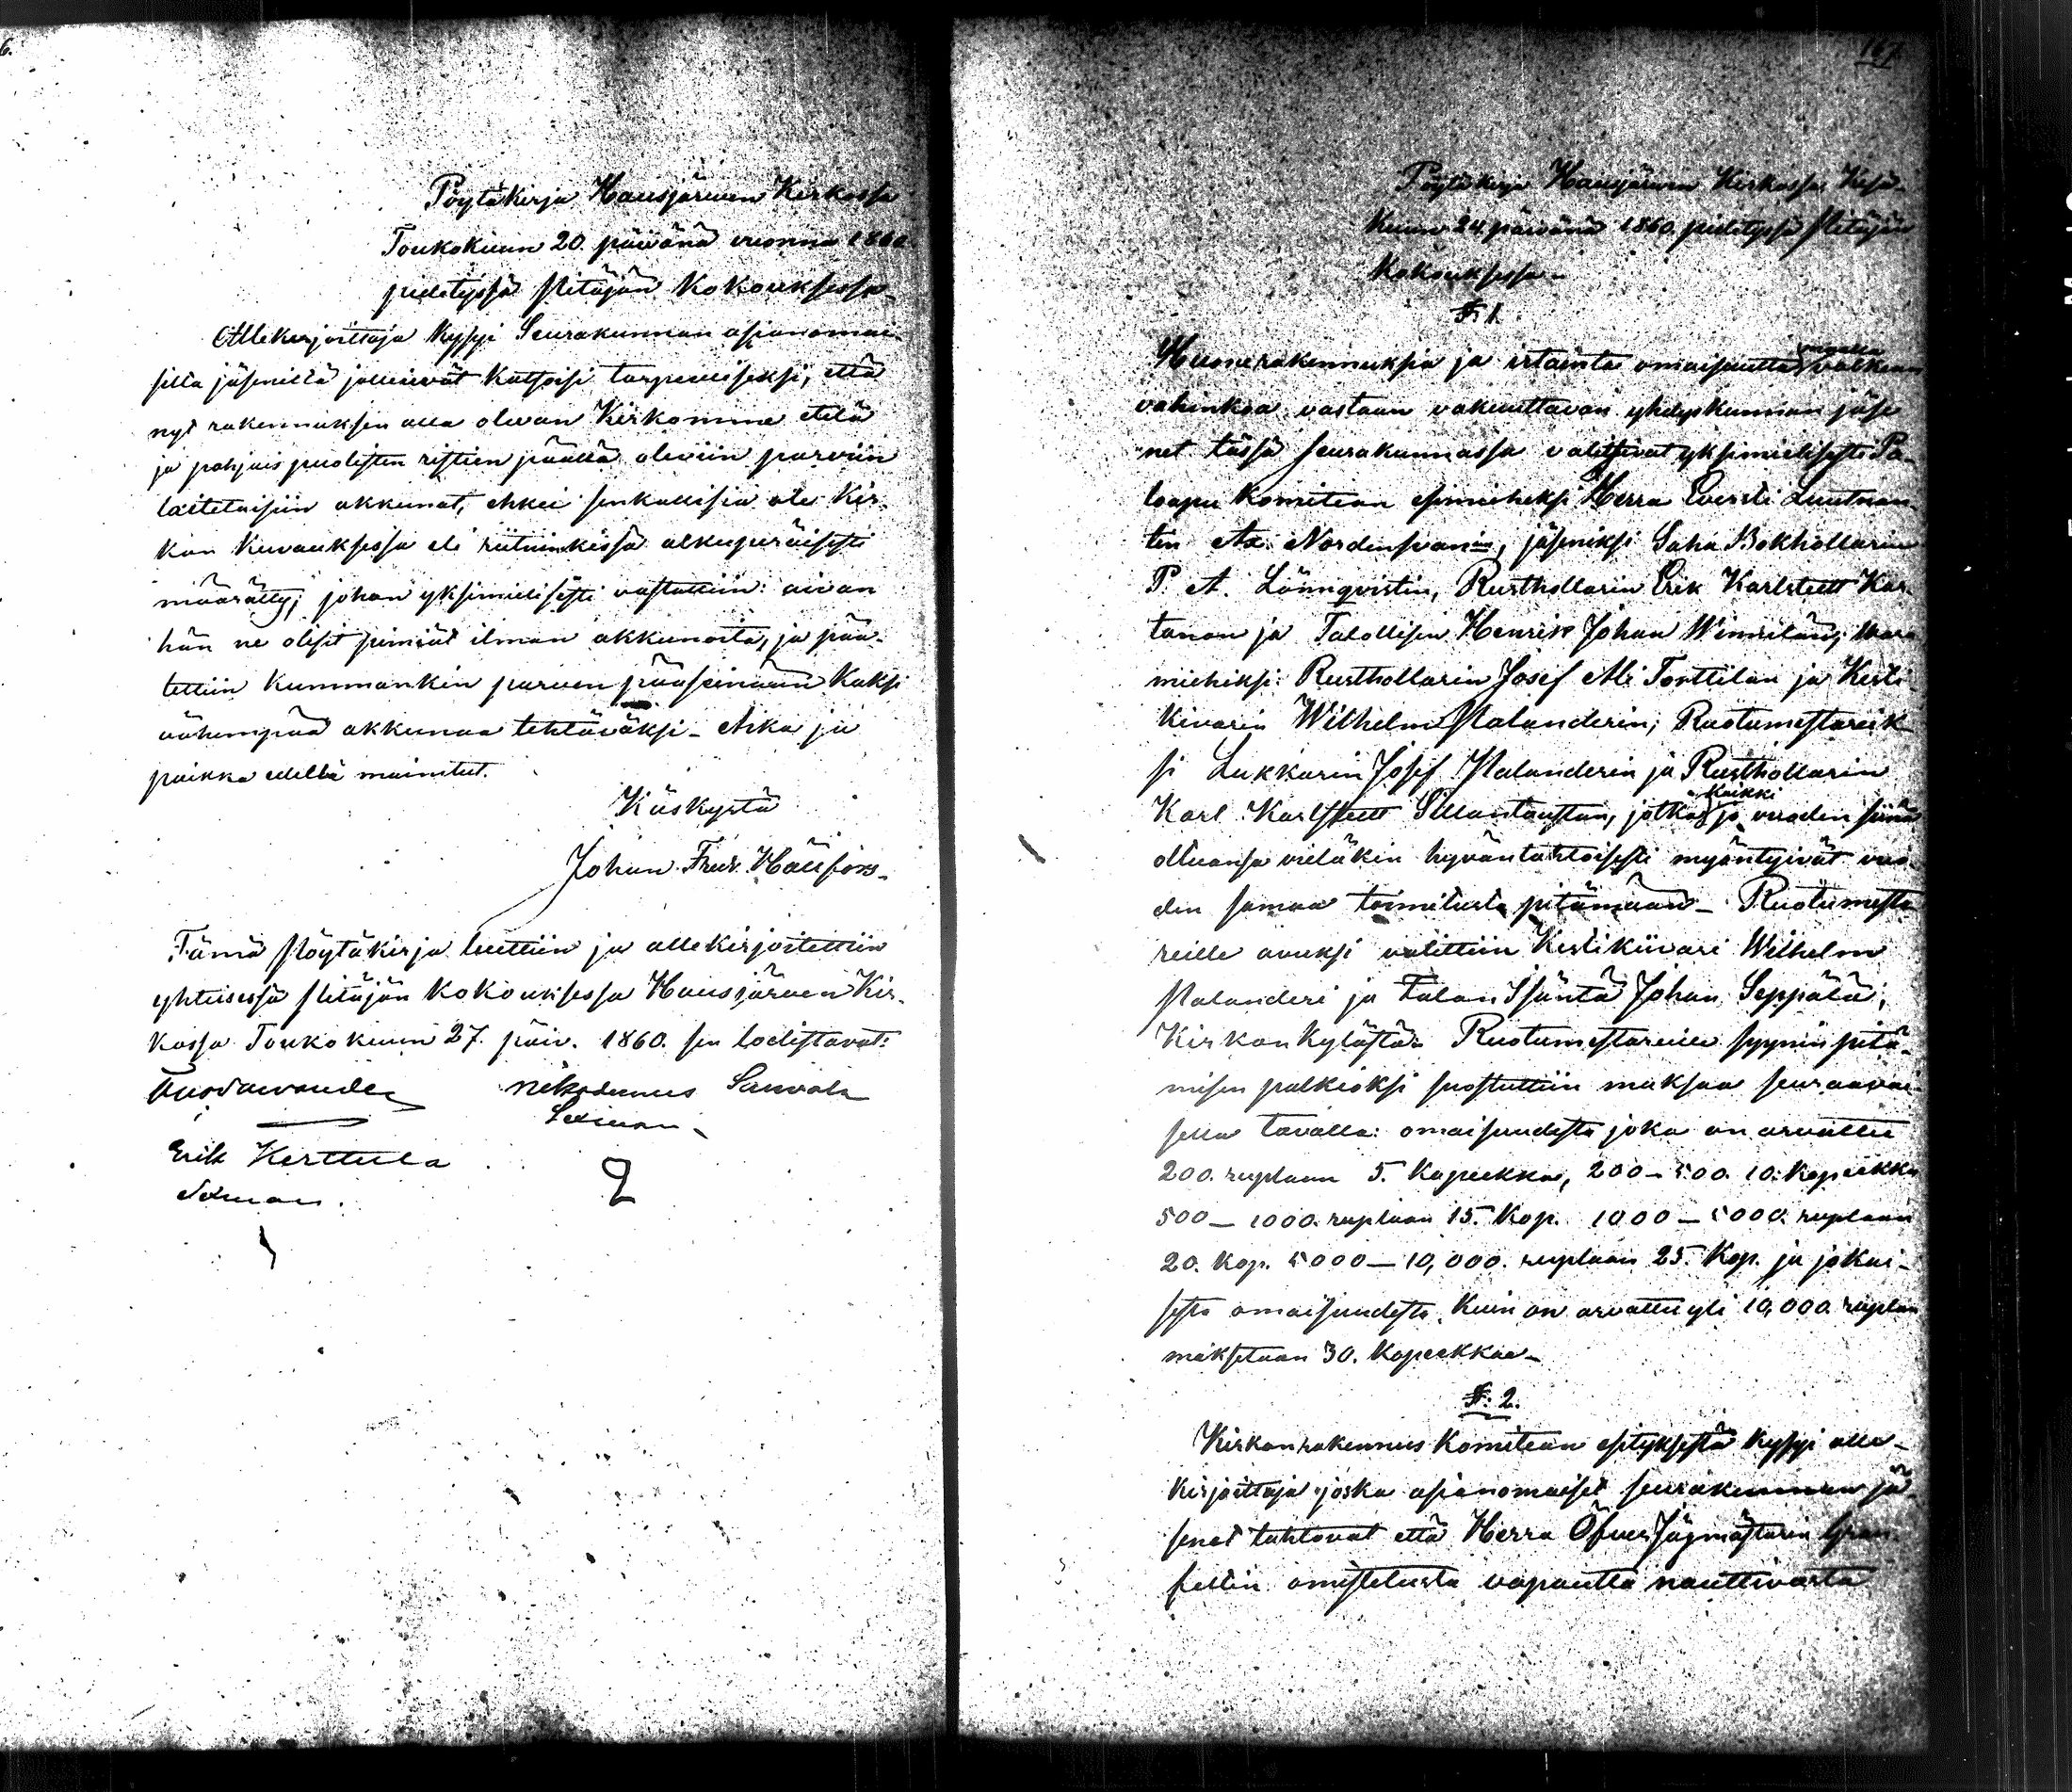 6.
Pöytäkirja Hausjärwen Kirkossa
Toukokuun 20. päiwänä wuonna 1860
pidetyssä Pitäjän Kokouksessa_
Allekirjoittaja kysyi Seurakunnan asianomai-
silta jäseniltä jolleiwät katsoisi tarpeelliseksi, että
nyt rakennuksen alla olewan Kirkomme etelä
ja pohjais puolisten ristien päällä olewiin parwiin
laitetaisiin akkunat, ehkei senkallisia ole Kir-
kon kuwauksessa eli riitninkissä alkuperäisesti
määrätty; johon yksimielisesti wastattiin: aiwan
hän ne olisit pimiät ilman akkunoita, ja pää-
tettiin kummankin parwen pääseinään kaksi
vähempää akkunaa tehtäväksi_ Aika ja
paikka edellä mainitut.
Käskystä
Johan Fredr. Hällfors_
Tämä Pöytäkirja luettiin ja allekirjoitettiin
yhteisessä Pitäjän Kokouksessa Hausjärwen Kir-
kossa Toukokuun 27. päiv. 1860. sen todistavat:
Nikodemus Sauvala
Erik Kerttula
167
Pöytäkirja Hausjärwen Kirkossa Kesä-
kuun 24. päiwänä 1860. pidetyssä Pitäjän
Kokouksessa_
§: 1.
Huonerakennuksia ja irtainta omaisuutta valkean
vahinkoa vastaan vakuuttavan yhdyskunnan jäse
net tässä seurakunnassa valitsivat yksimielisesti Pa-
loapu Komitean esimieheksi Herra Eversti Luutnan-
tin Ax. Nordensvanin, jäseniksi Saha Bokhollarin
P. A. Lönnqvistin, Rusthollarin Erik Karlstedt Kar-
tanon ja Talollisen Henrik Johan Winnilän; Wara
miehiksi: Rusthollarin Josef Ali Torttilan ja Kesti-
kivarin Wilhelm Palanderin; Ruotumestareik
si Lukkarin Josef Palanderin ja Rusthollarin
Karl Karlstedt Sillantaustan, jotka kaikki jo vuoden siinä
oltuansa vieläkin hyväntahtoisesti myöntyivät vuo
den samaa toimitusta pitämään_ Ruotumesta
reille avuksi valittiin Kestikiivari Wilhelm
Palanderi ja Talon Isäntä Johan Seppälä;
Kirkonkylästä. Ruotumestareille syynin pitä-
misen palkioksi suostuttiin maksaa seuraavai-
sella tavalla: omaisuudesta joka on arvattu
200. ruplaan 5. Kopeekkaa, 200_500. 10. kopeekkaa
500_1000. ruplaan 15. Kop. 1000_5000. ruplaan
20. Kop. 5000_10,000. ruplaan 25. Kop. ja jokai-
sesta omaisuudesta kuin on arvattu yli 10,000 ruplan
maksetaan 30. Kopeekkaa_
§: 2.
Kirkonrakennus Komitean esityksestä kysyi alle-
kirjoittaja joska asianomaiset seurakunnan jä-
senet tahtovat että Herra Öfver Jägmästarin Gran-
feltin omistelusta vapautta nauttivasta